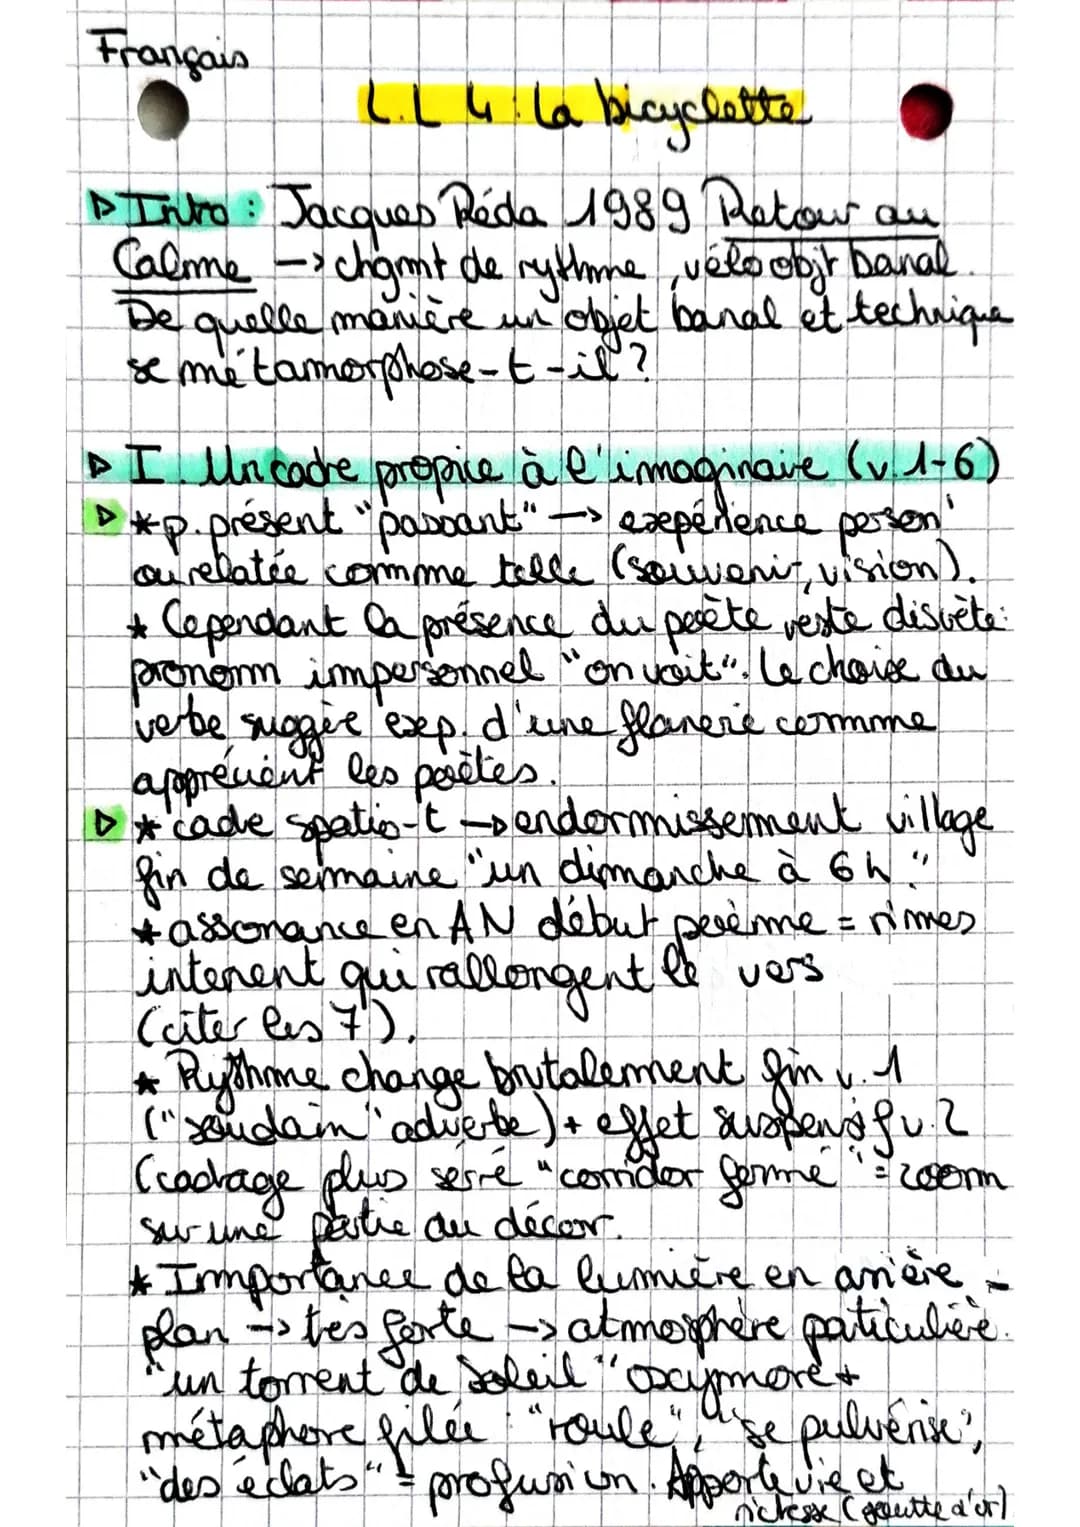 Français
L.L 4 : La bicyclette
▷ Intro : Jacques Réda 1989 Retour au
Calme -> chgmt de rythme, vélo objt banal.
De quelle manière un objet banal et technique
se métamorphose-t-il ?
▷ I. Un cadre propice à l'imaginaire (v.1-6)
▷ *p. présent "passant" -> exepérience person'
ou relatée comme telle (souvenir, vision).
* Cependant la présence du poète reste discrète :
pronom impersonnel "on voit". Le choix du
verbe suggère exp. d'une flanerie comme
apprécient les poètes.
▷ * cadre spatio-t -> endormissement village
fin de semaine "un dimanche à 6h"
* assonance en AN début poème = rimes
internent qui rallongent le vers
(citer les 7).
* Rythme change brutalement fin v.1
("soudain" adverbe) + effet suspensif v.2
(cadrage plus serré "corridor fermé" = zoom
sur une partie du décor.
* Importance de la lumière en arrière-
plan -> très forte -> atmosphère particulière.
"un torrent de soleil" oxymore +
métaphore filée : "roule", "se pulvérise",
"des éclats" = profusion. Apporte vie et
richesse (goutte d'or)